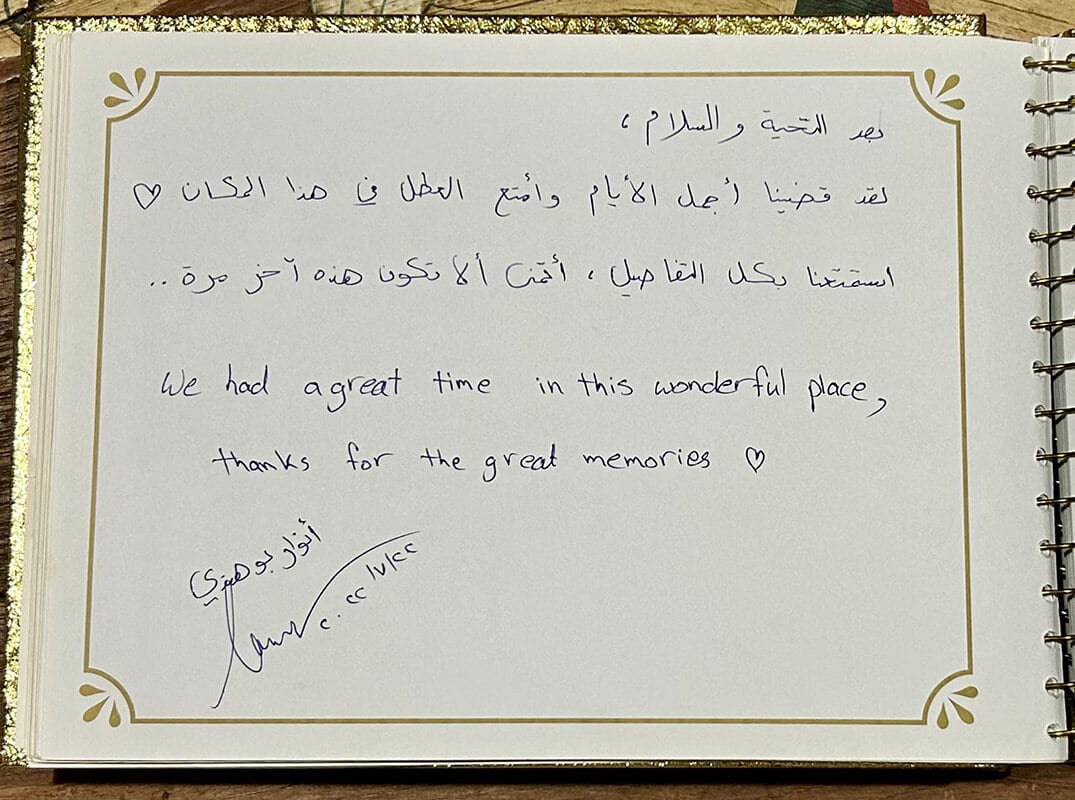 بعد التحية والسلام ،
لقد قضينا أجمل الأيام وأمتع العطل في هذا المكان ♡
استمتعنا بكل التفاصيل ، أتمنى ألا تكون هذه آخر مرة ..
We had a great time in this wonderful place,
thanks for the great memories ♡
أنوار بو
٢٠٢٢/٧/٢٢